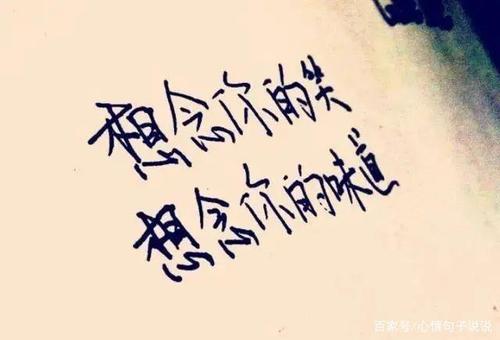 想念你的笑
想念你的味道
百家号/心情句子说说